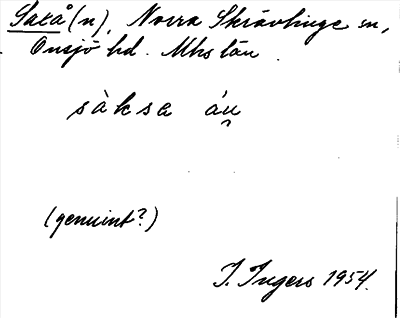 Saxå (n), Norra Skrävlinge sn,
Onsjö hd. Mhs län
sàksa áu̯
(genuint?)
I. Ingers 1954.